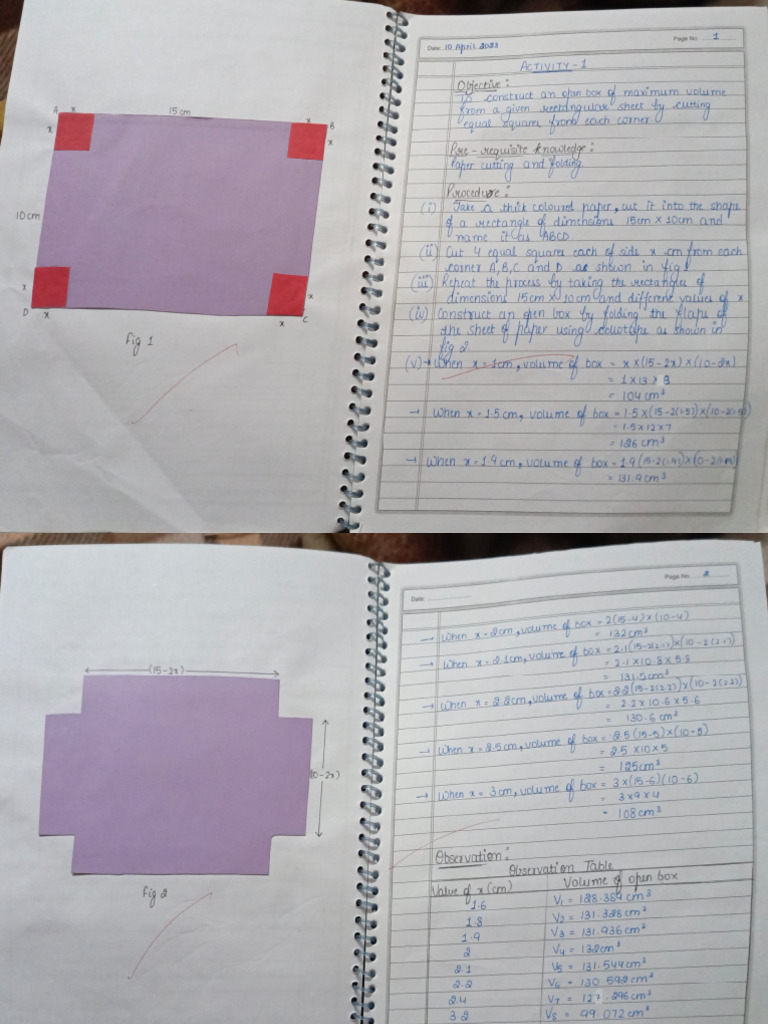 A x
15 cm
x
B
x
x
10 cm
x
x
D
x
x
C
Fig 1
Date: 10 April 2023
Page No. 1
ACTIVITY-1
Objective:
To construct an open box of maximum volume
from a given rectangular sheet by cutting
equal squares from each corner.
Pre-requisite knowledge:
Paper cutting and folding.
Procedure:
(i) Take a thick coloured paper, cut it into the shape
of a rectangle of dimensions 15cm x 10cm and
name it as ABCD
(ii) Cut 4 equal squares each of side x cm from each
corner A, B, C and D as shown in fig 1
(iii) Repeat the process by taking the rectangles of
dimensions 15cm x 10cm and different values of x
(iv) Construct an open box by folding the flaps of
the sheet of paper using cellotape as shown in
fig 2
(v) → When x = 1cm, volume of box = x x (15-2x) x (10-2x)
= 1 x 13 x 8
= 104 cm³
→ When x = 1.5 cm, volume of box = 1.5 x (15-2(1.5)) x (10-2(1.5))
= 1.5 x 12 x 7
= 126 cm³
→ When x = 1.9 cm, volume of box = 1.9 (15-2(1.9)) x (10-2(1.9))
= 131.9 cm³
(15-2x)
(10-2x)
Fig 2
Date:
Page No. 2
→ When x = 2cm, volume of box = 2(15-4) x (10-4)
= 132 cm³
→ When x = 2.1cm, volume of box = 2.1(15-2(2.1)) x (10-2(2.1))
= 2.1 x 10.8 x 5.8
= 131.5 cm³
→ When x = 2.2cm, volume of box = 2.2(15-2(2.2)) x (10-2(2.2))
= 2.2 x 10.6 x 5.6
= 130.6 cm³
→ When x = 2.5cm, volume of box = 2.5 (15-5) x (10-5)
= 2.5 x 10 x 5
= 125 cm³
→ When x = 3 cm, volume of box = 3 x (15-6) (10-6)
= 3 x 9 x 4
= 108 cm³
Observation:
Observation Table
Value of x (cm) Volume of open box
1.6 V₁ = 128.384 cm³
1.8 V₂ = 131.328 cm³
1.9 V₃ = 131.936 cm³
2 V₄ = 132 cm³
2.1 V₅ = 131.544 cm³
2.2 V₆ = 130.592 cm³
2.4 V₇ = 127.296 cm³
3.2 V₈ = 99.072 cm³